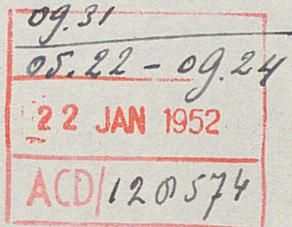 09.31
05.22 - 09.24
22 JAN 1952
ACD/120574